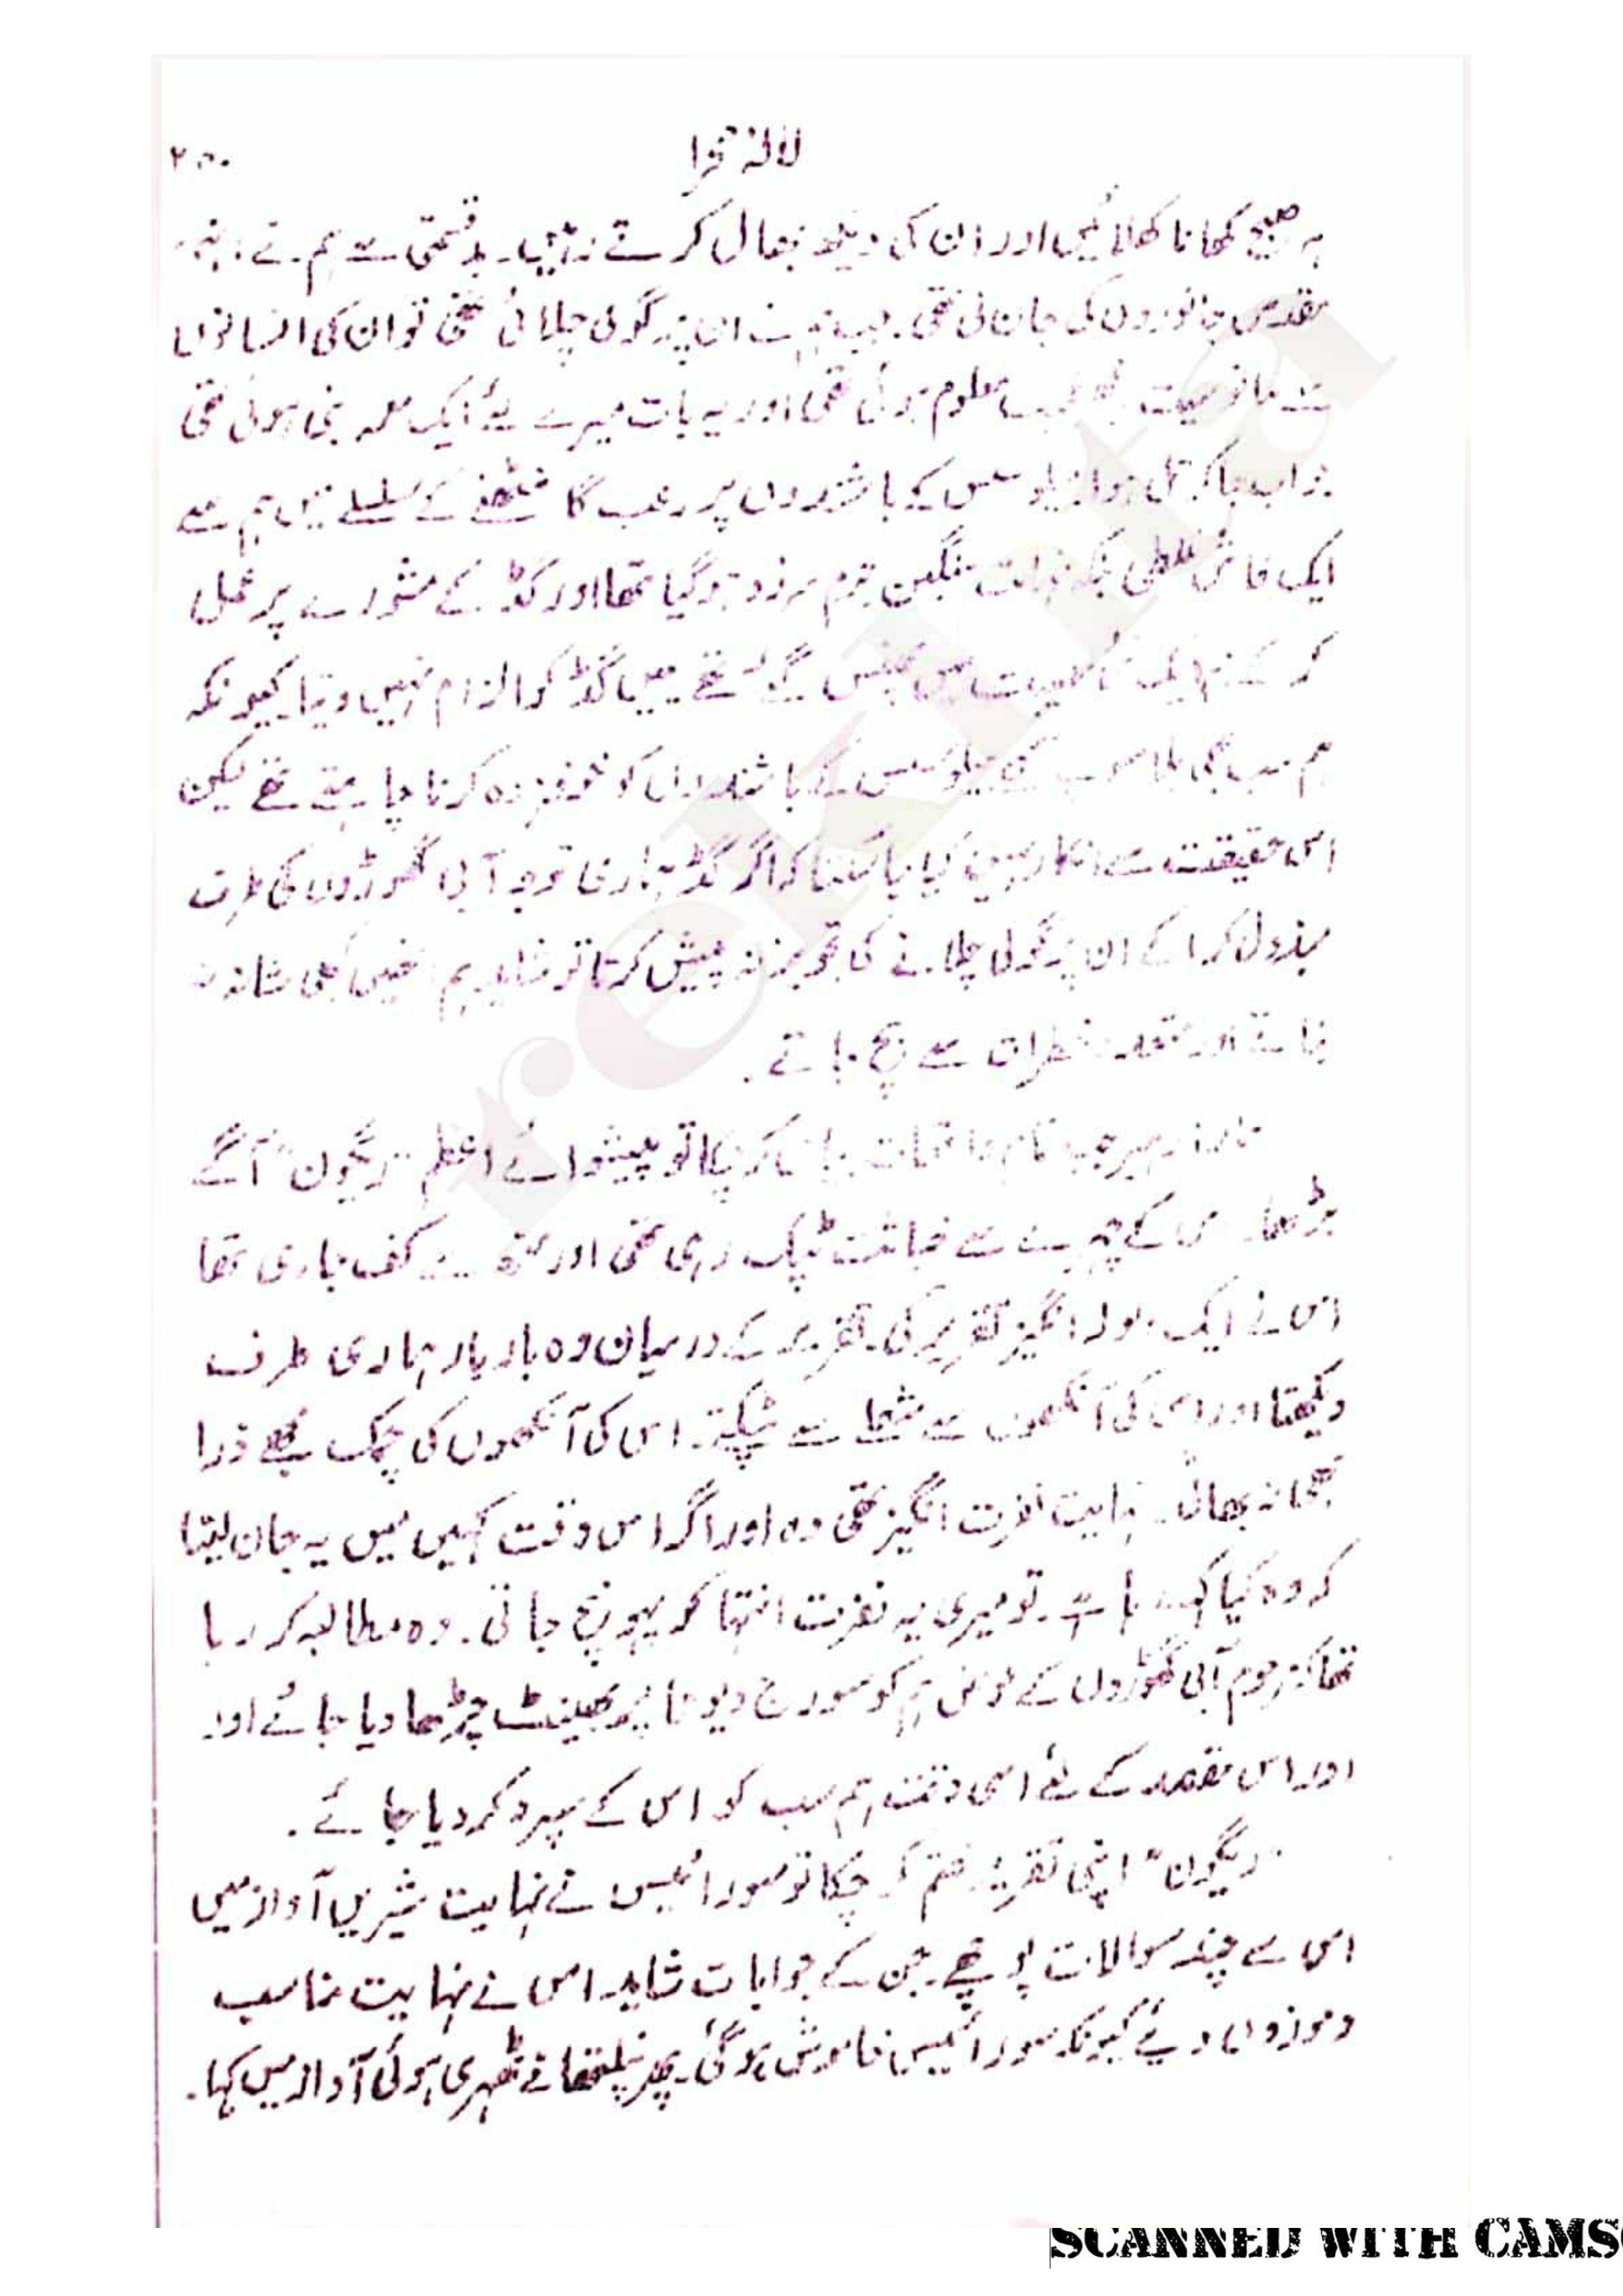 لالۂ صحرا
۲۵۰
صبح کھانا کھلائیں اور ان کی دیکھ بھال کرتے رہیں۔ بدقسمتی سے ہم نے
مقدس جانوروں کی جان لی تھی۔ جب ہم نے ان پر گولی چلائی تھی تو ان کی انسانوں
سے مانوسیت مجھے عجیب معلوم ہوئی تھی اور یہ بات میرے لئے ایک معمہ بنی ہوئی تھی
کے باشندوں پر رعب گانٹھنے کے سلسلے میں ہم سے
ایک فاش غلطی بلکہ نہایت سنگین جرم سرزد ہو گیا تھا اور گڈ کے مشورے پر عمل
کر کے ہم ایک مصیبت میں پھنس گئے تھے میں گڈ کو الزام نہیں دیتا کیونکہ
ہم سب ہی کے باشندوں کو خوفزدہ کرنا چاہتے تھے لیکن
اس حقیقت سے انکار نہیں کیا جا سکتا کہ اگر گڈ ہماری توجہ آبی گھوڑوں کی طرف
مبذول کرا کے ان پر گولی چلانے کی تجویز نہ پیش کرتا تو شاید ہم انہیں نشانہ نہ
بناتے اور متعدد خطرات سے بچ جاتے۔
تمام واقعات بیان کر چکا تو پیشوائے اعظم "ریگون" آگے
بڑھا۔ اس کے چہرے سے خباثت ٹپک رہی تھی اور منہ سے کف جاری تھا
اس نے ایک ولولہ انگیز تقریر کی۔ تقریر کے درمیان وہ بار بار ہماری طرف
دیکھتا اور اس کی آنکھوں سے شعلے سے ٹپکتے۔ اس کی آنکھوں کی چمک مجھے ذرا
بھی نہ بھائی۔ نہایت نفرت انگیز تھی وہ اور اگر اس وقت کہیں میں یہ جان لیتا
کہ وہ کیا کہہ رہا ہے۔ تو میری یہ نفرت انتہا کو پہونچ جاتی۔ وہ مطالبہ کر رہا
تھا کہ مرحوم آبی گھوڑوں کے عوض ہم کو سورج دیوتا پر بھینٹ چڑھا دیا جائے اور
اور اس مقصد کے لئے اسی وقت ہم سب کو اس کے سپرد کر دیا جائے۔
"ریگون" اپنی تقریر ختم کر چکا تو سورائیس نے نہایت شیریں آواز میں
اس سے چند سوالات پوچھے۔ جن کے جوابات شاید اس نے نہایت مناسب
و موزوں دیئے کیونکہ سورائیس خاموش ہو گئی۔ پھر نیلیتھا نے ٹھہری ہوئی آواز میں کہا۔
rekhta
SCANNED WITH CAMS